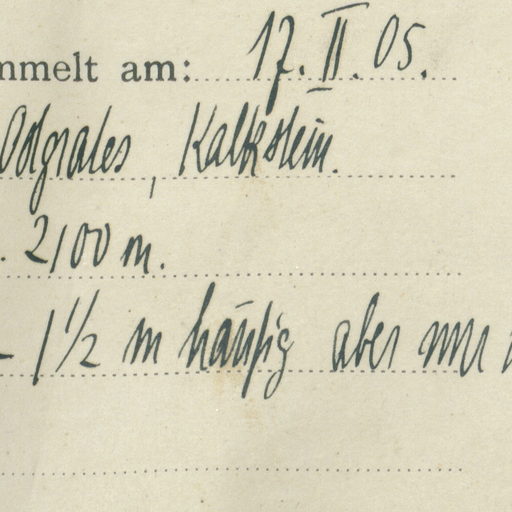 mmelt am: 17. II. 05.
Odgrates, Kalkstein.
. 2100 m.
– 1 1/2 m häufig aber nur